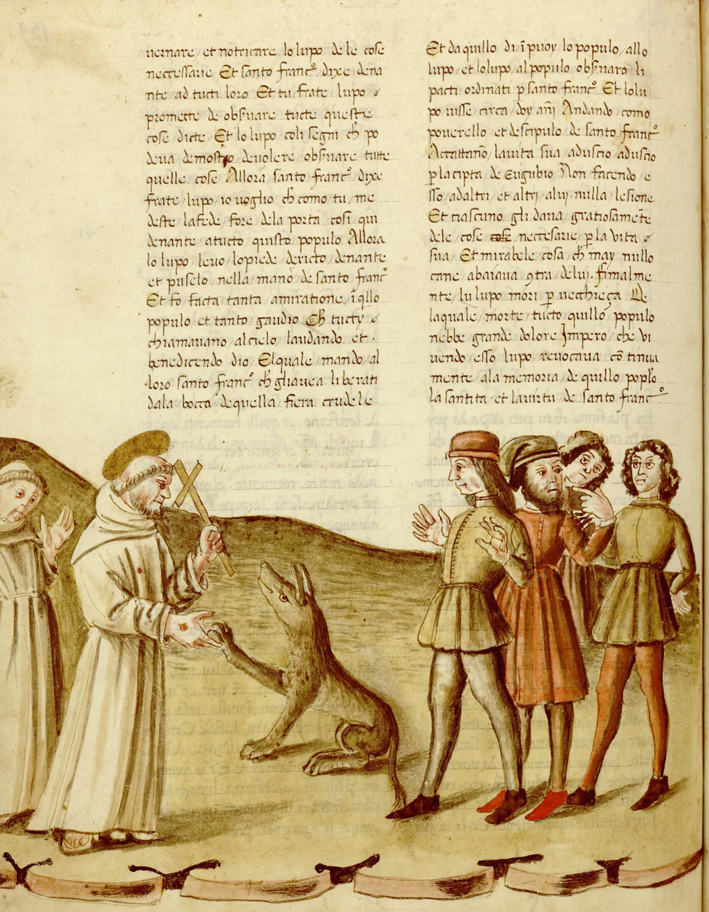 uernare et notricare lo lupo de le cose
necessarie Et santo franc.º dixe dena
nte ad tucti loro Et tu frate lupo
promette de obs̃uare tucte queste
cose dicte Et lo lupo coli segni ch̃ po
deua demostro deuolere obs̃uare tutte
quelle cose Allora santo franc.º dixe
frate lupo io uoglio ch̃ como tu me
deste la fede fore dela porta cosi qui
denante atucto quisto populo Allora
lo lupo leuo lopiede dericto denante
et puselo nella mano de santo franc.º
Et fo facta tanta amiratione ĩ q̃llo
populo et tanto gaudio Ch̃ tucty
chiamauano al cielo laudando et
benedicendo dio El quale mando al
loro santo franc.º ch̃ gli auea liberati
dala bocca de quella fiera crudele
Et da quillo di ĩ puoy lo populo allo
lupo et lo lupo al populo obs̃uaro li
pacti ordinati p̱ santo franc.º Et lo lu
po uisse circa doy añi Andando como
pouerello et descipulo de santo franc.º
Accattano la uita sua aduscio aduscio
p̱ la cipta de Eugubio Non facendo e
sso ad altri et altri alui nulla lesione
Et ciascuno gli daua gratiosamẽte
dele cose necessarie p̱ la vita
sua Et mirabele cosa ch̃ may nullo
cane abaiaua 9tra de lui. finalme
nte lu lupo mori p̱ uechieça De
laquale morte tucto quillo populo
nebbe grande dolore Impero che vi
uendo esso lupo reuocaua cõ tinua
mente ala memoria de quillo pop̱lo
la santita et la uirtu de santo franc.º